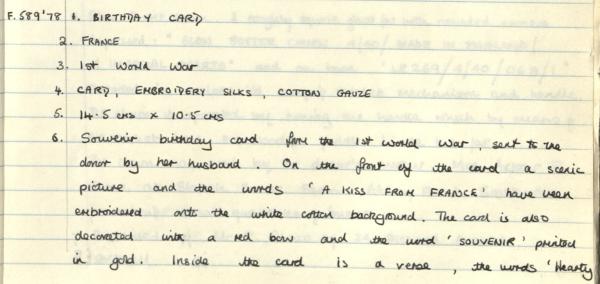 F.589'78 1. BIRTHDAY CARD
2. FRANCE
3. 1st World War
4. CARD, EMBROIDERY SILKS, COTTON GAUZE
5. 14.5 cms x 10.5 cms
6. Souvenir birthday card from the 1st World War, sent to the
donor by her husband. On the front of the card a scenic
picture and the words 'A KISS FROM FRANCE' have been
embroidered onto the white cotton background. The card is also
decorated with a red bow and the word 'SOUVENIR' printed
in gold. Inside the card is a verse, the words 'Hearty